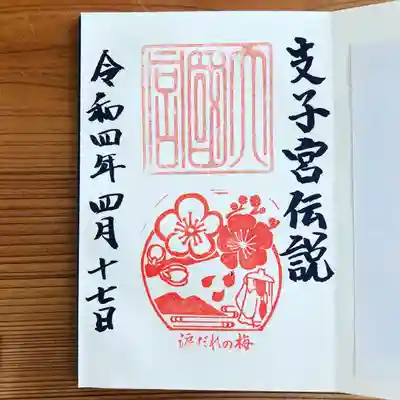 支子宮伝説
だれの梅
令和四年四月十七日